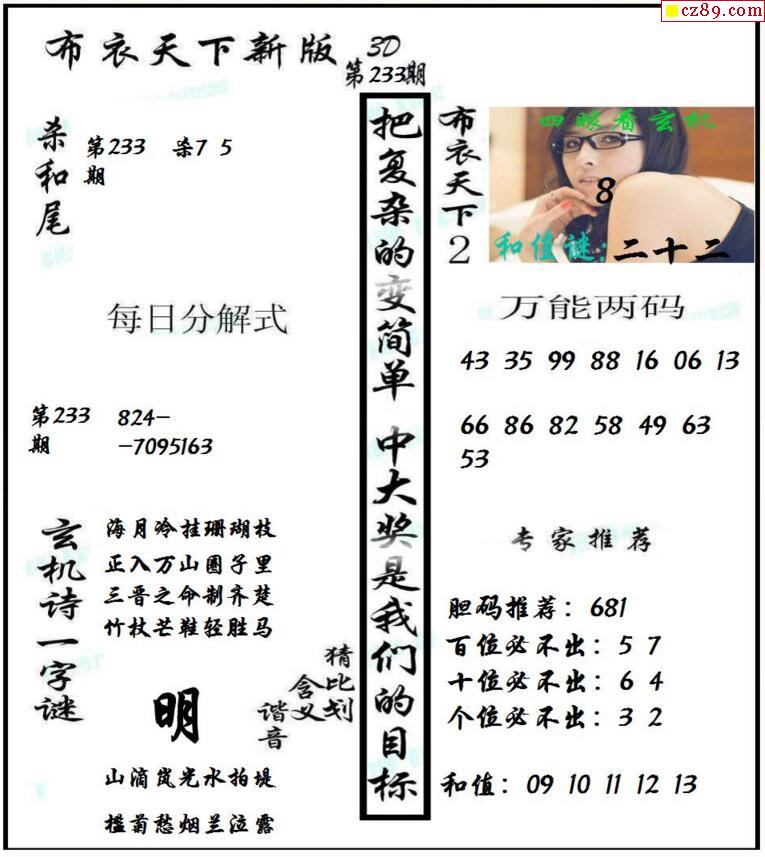 cz89.com
布衣天下新版 3D
第233期
杀和尾
第233期 杀7 5
每日分解式
第233期 824-
-7095163
玄机诗一字谜
海月冷挂珊瑚枝
正入万山圈子里
三晋之命制齐楚
竹杖芒鞋轻胜马
明
猜比划
含义
谐音
山滴岚光水拍堤
槛菊愁烟兰泣露
把复杂的变简单 中大奖是我们的目标
布衣天下2
四眼看玄机
8
和值谜:二十二
万能两码
43 35 99 88 16 06 13
66 86 82 58 49 63
53
专家推荐
胆码推荐：681
百位必不出：5 7
十位必不出：6 4
个位必不出：3 2
和值：09 10 11 12 13